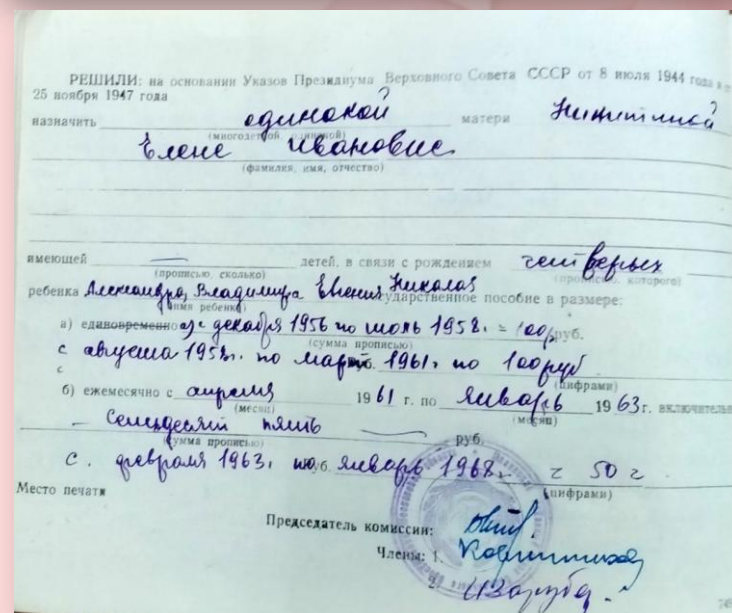 РЕШИЛИ: на основании Указов Президиума Верховного Совета СССР от 8 июля 1944 года и
25 ноября 1947 года
назначить одинокой матери Никитиной
(многодетной, одинокой)
Елене Ивановне
(фамилия, имя, отчество)
имеющей — детей, в связи с рождением четверых
(прописью, сколько) (прописью, которого)
ребенка Александра, Владимира Евгения Николая государственное пособие в размере:
(имя ребенка)
а) единовременно а) с декабря 1956 по июль 1958г. = 100 руб.
(сумма прописью)
с августа 1958г. по март 1961г. по 100 руб
с (цифрами)
б) ежемесячно с апреля 1961 г. по январь 1963 г. включительно
(месяц) (месяц)
— семьдесят пять — руб.
(сумма прописью)
с. февраля 1963г. по руб. январь 1968г. 50
(цифрами)
Место печати
Председатель комиссии:
Члены: 1.
2.